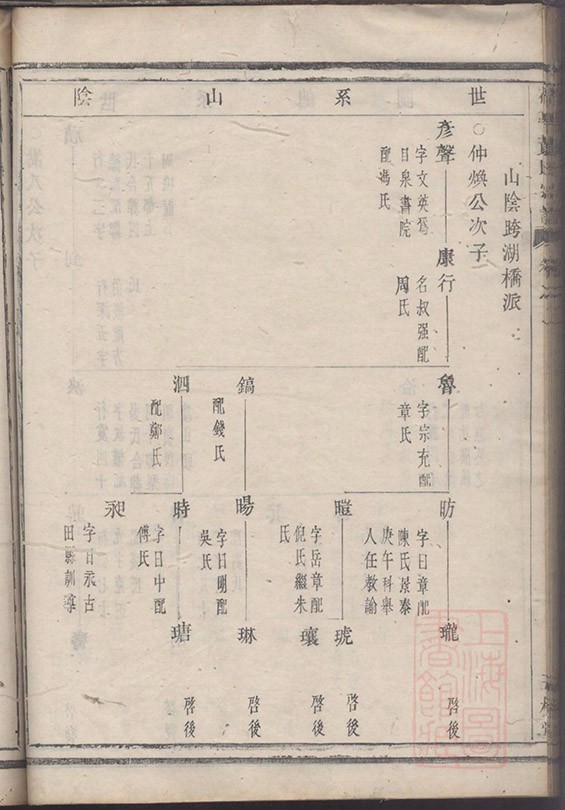 世系山陰
山陰跨湖橋派
○仲煥公次子
彥聲
字文英爲
目泉書院
配馮氏
康行
名叔强配
周氏
魯
字宗充配
章氏
鎬
配錢氏
泗
配鄭氏
昉
字日章配
陳氏景泰
庚午科舉
人任教諭
瓏
啓後
暟
字岳章配
倪氏繼朱
氏
琥
啓後
瓖
啓後
暘
字日剛配
吳氏
琳
啓後
時
字日中配
傅氏
瑭
啓後
昶
字日永古
田縣訓導
上海圖
書館藏